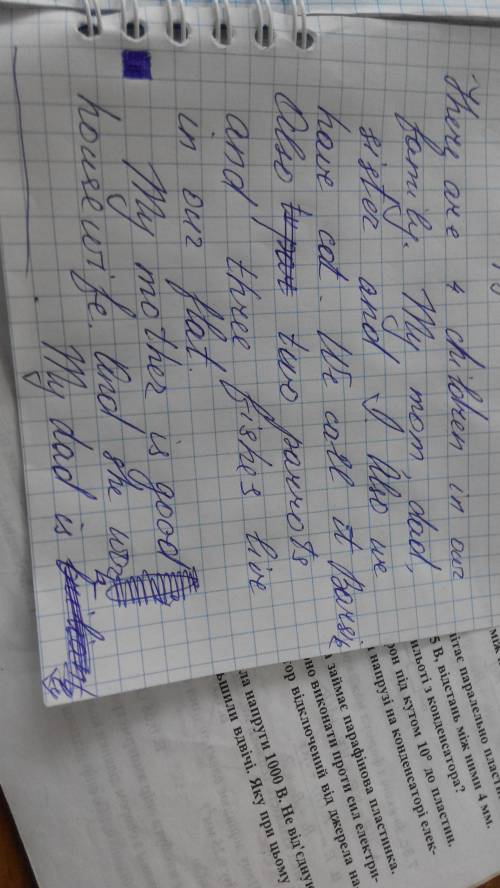 There are 4 children in our
family. My mom, dad,
sister and I. Also we
have cat. We call it Barsik
Also two parrots
and three fishes live
in our flat.
My mother is good
housewife. And she
My dad is
ітає паралельно
5 В, відстань між ними 4 мм.
з конденсатора?
рон під кутом 10° до пластин.
і напрузі на конденсаторі елек-
займає парафінова пластинка.
но виконати проти сил електри-
тор відключений від джерела на-
ла напруги 1000 В. Не від'єдную
ьшили вдвічі. Яку при цьому